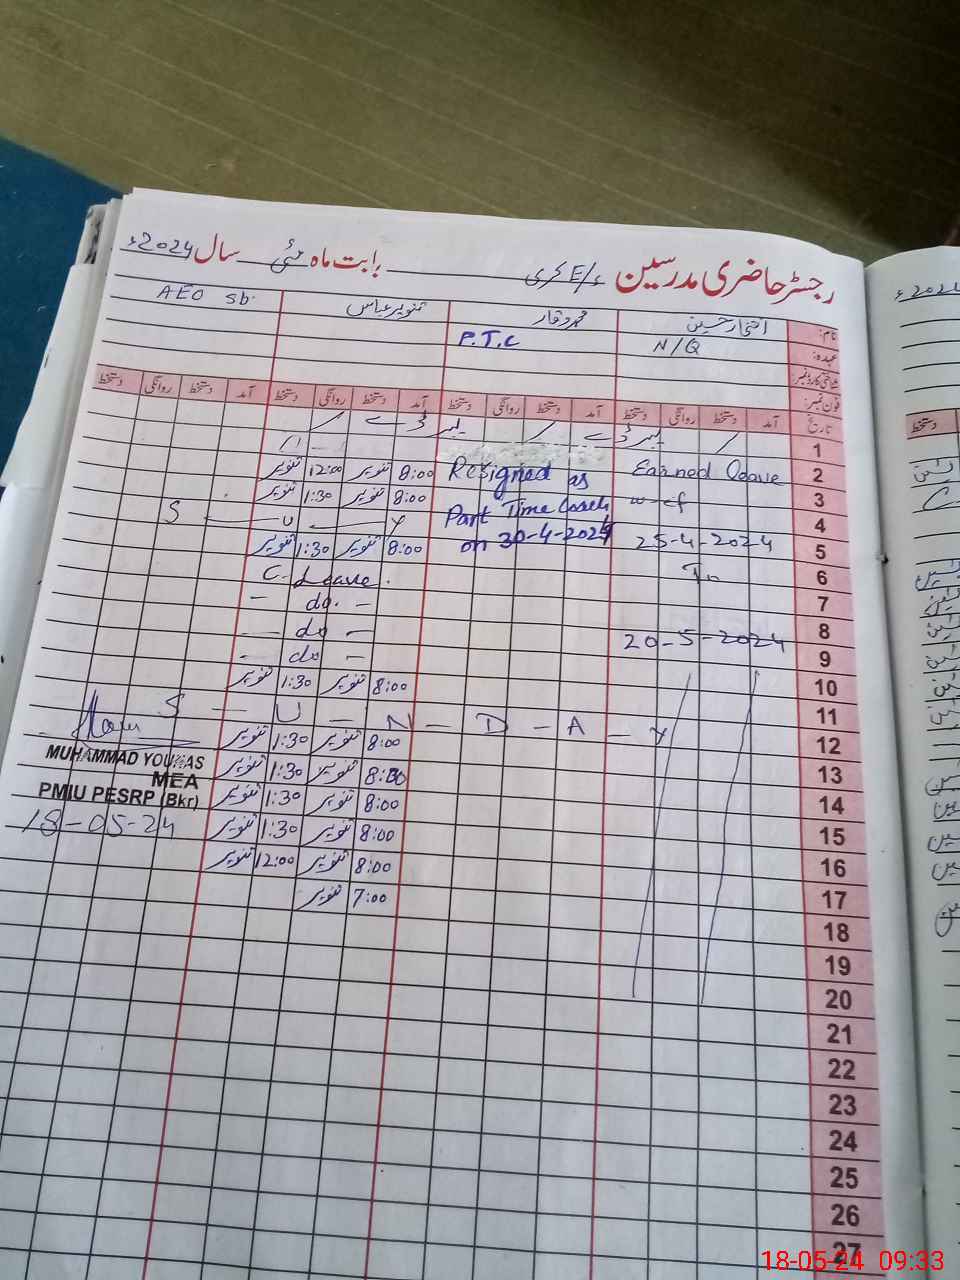 رجسٹر حاضری مدرسین
بابت ماہ مئی سال 2024ء
نام: افتخار حسین محمد وقار تنویر عباس AEO sb.
عہدہ: N/Q P.T.C
شناختی کارڈ نمبر:
فون نمبر:
تاریخ آمد دستخط روانگی دستخط آمد دستخط روانگی دستخط آمد دستخط روانگی دستخط آمد دستخط روانگی دستخط
1 لیبر ڈے لیبر ڈے
2 Earned leave Resigned as 8:00 تنویر 12:00 تنویر
3 w-ef Part Time Coach 8:00 تنویر 1:30 تنویر
4 25-4-2024 on 30-4-2024 S U Y
5 To 8:00 تنویر 1:30 تنویر
6 C. Leave.
7 20-5-2024 - do. -
8 - do -
9 - do -
10 8:00 تنویر 1:30 تنویر
11 S - U - N - D - A - Y
12 8:00 تنویر 1:30 تنویر
13 8:00 تنویر 1:30 تنویر
14 8:00 تنویر 1:30 تنویر
15 8:00 تنویر 1:30 تنویر
16 8:00 تنویر 12:00 تنویر
17 7:00 تنویر
18
19
20
21
22
23
24
25
26
27
MUHAMMAD YOUNAS
MEA
PMIU PESRP (Bkr)
18-05-24
2024ء
دستخط
18-05-24 09:33